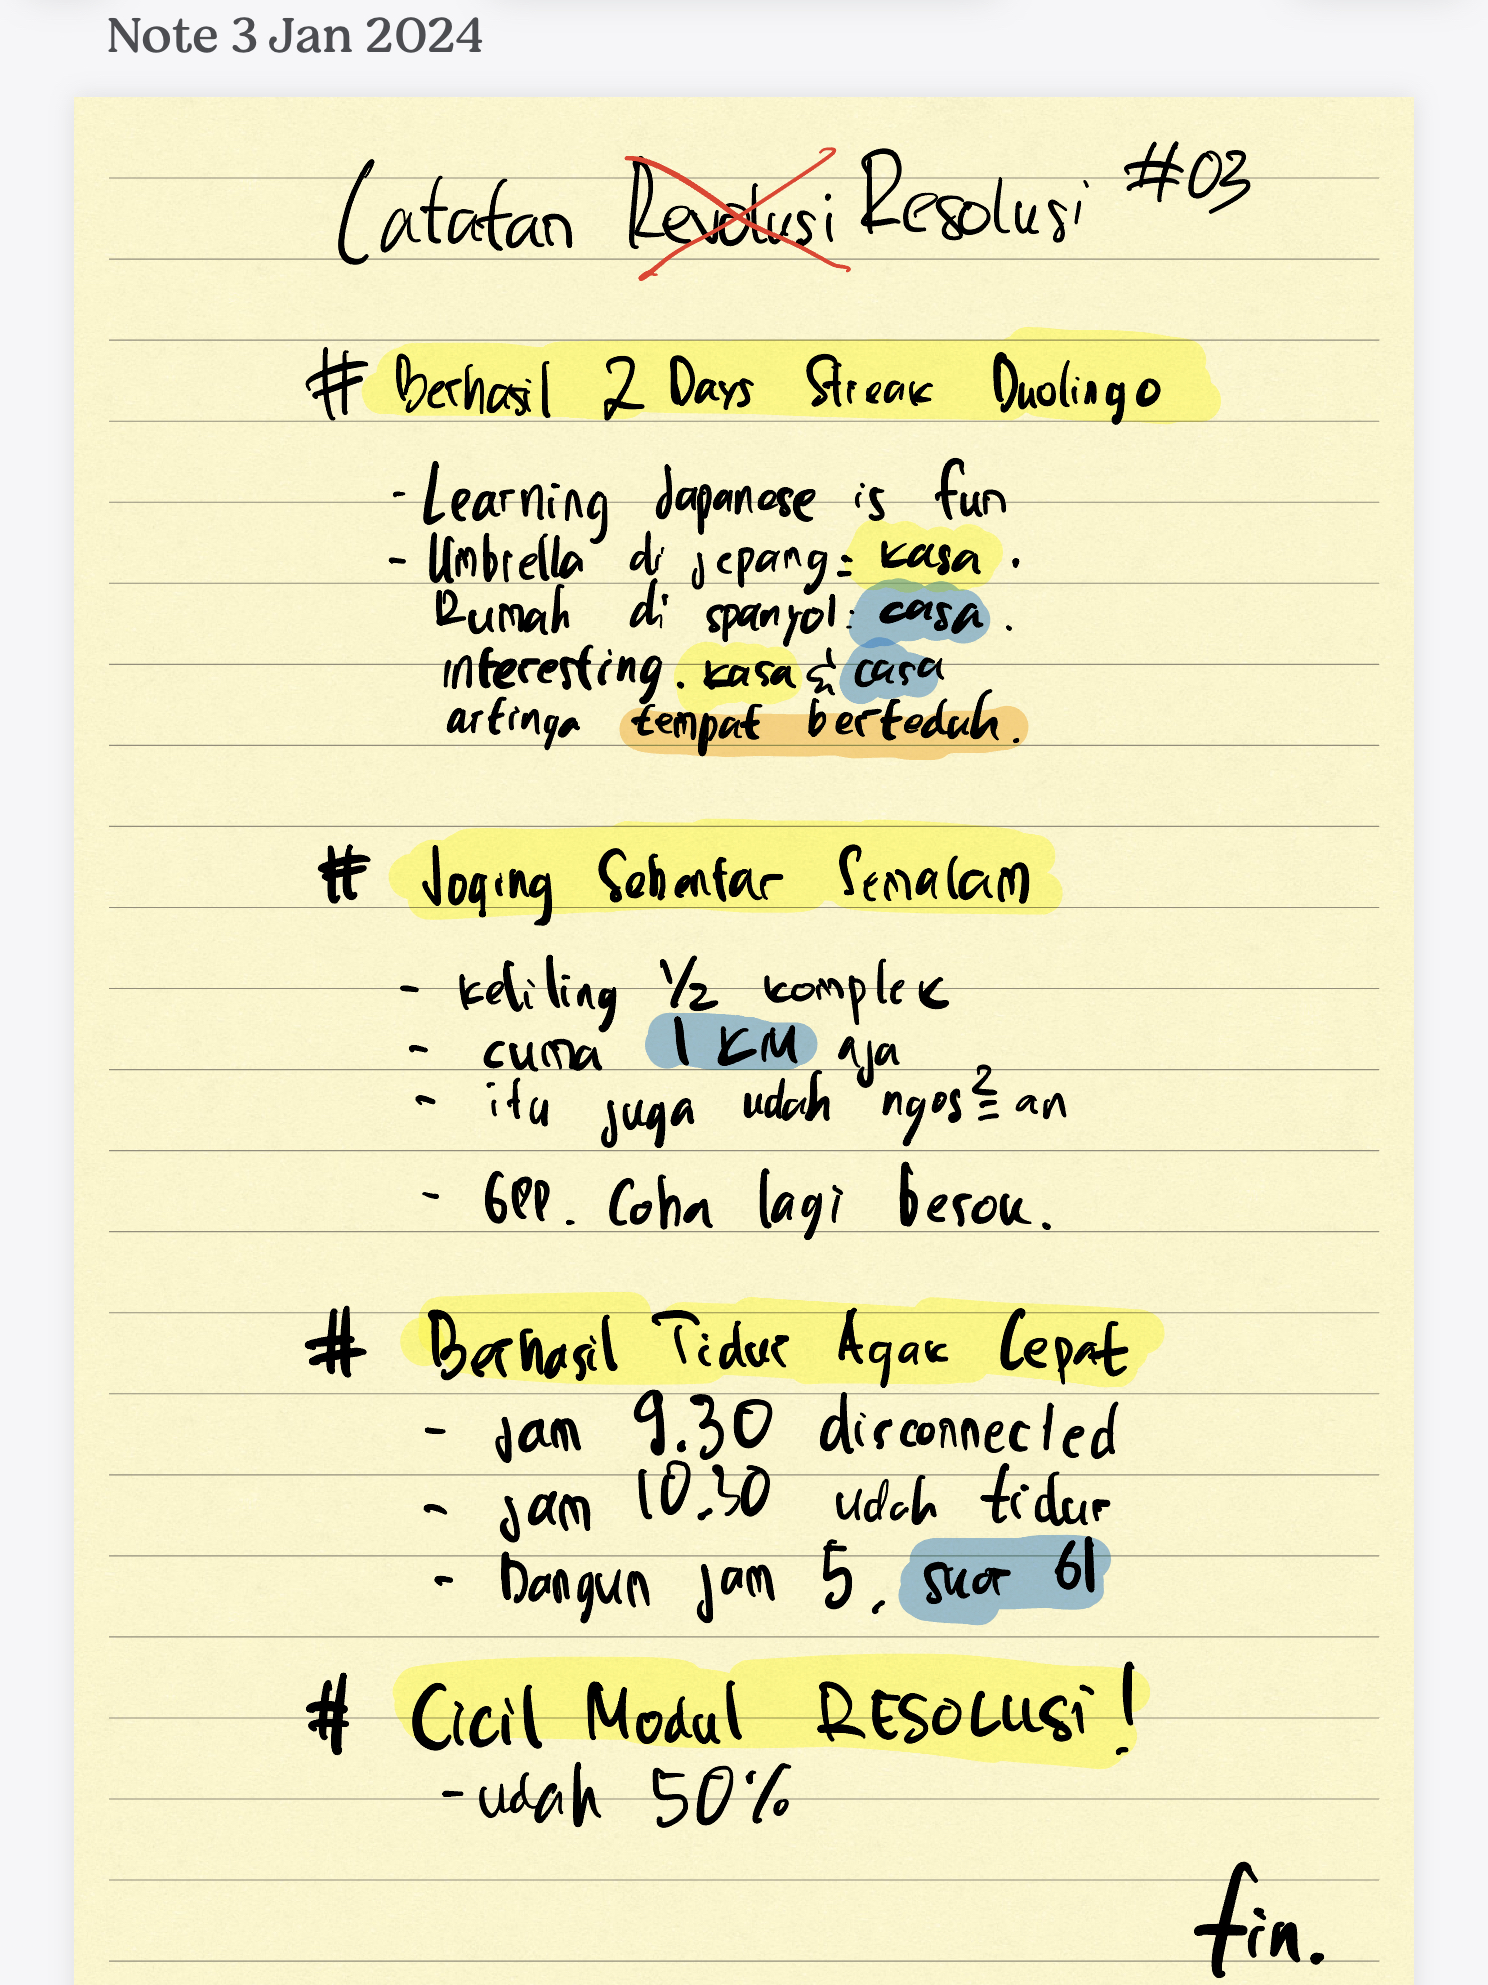 Note 3 Jan 2024
Catatan Revolusi Resolusi #03
# Berhasil 2 Days Streak Duolingo
- Learning Japanese is fun
- Umbrella di jepang = kasa.
Rumah di spanyol: casa.
interesting. kasa & casa
artinya tempat berteduh.
# Joging Sebentar Semalam
- keliling 1/2 komplek
- cuma 1 KM aja
- itu juga udah ngos² an
- GPP. Coba lagi besok.
# Berhasil Tidur Agak Cepat
- jam 9.30 disconnected
- jam 10.30 udah tidur
- Bangun jam 5. skor 61
# Cicil Modul RESOLUSI!
- udah 50%
fin.